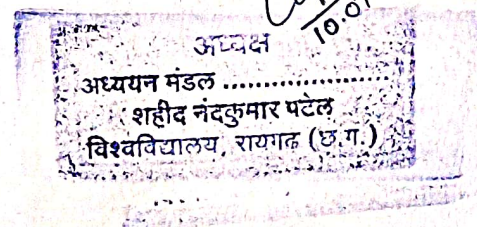 10.01
अध्यक्ष
अध्ययन मंडल ......................
शहीद नंदकुमार पटेल
विश्वविद्यालय, रायगढ (छ.ग.)